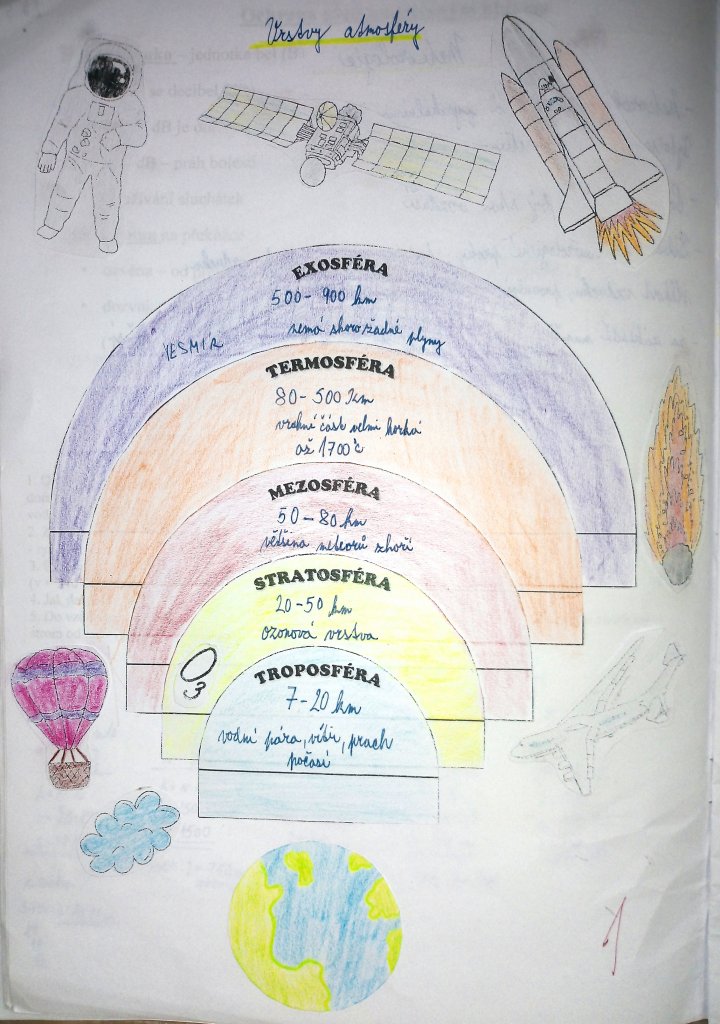 Vrstvy atmosféry
EXOSFÉRA
500-900 km
nemá skoro žádné plyny
VESMÍR
TERMOSFÉRA
80-500 km
vrchní část velmi horká
až 1700°C
MEZOSFÉRA
50-80 km
většina meteorů shoří
STRATOSFÉRA
20-50 km
ozonová vrstva
O3
TROPOSFÉRA
7-20 km
vodní pára, vítr, prach
počasí
1